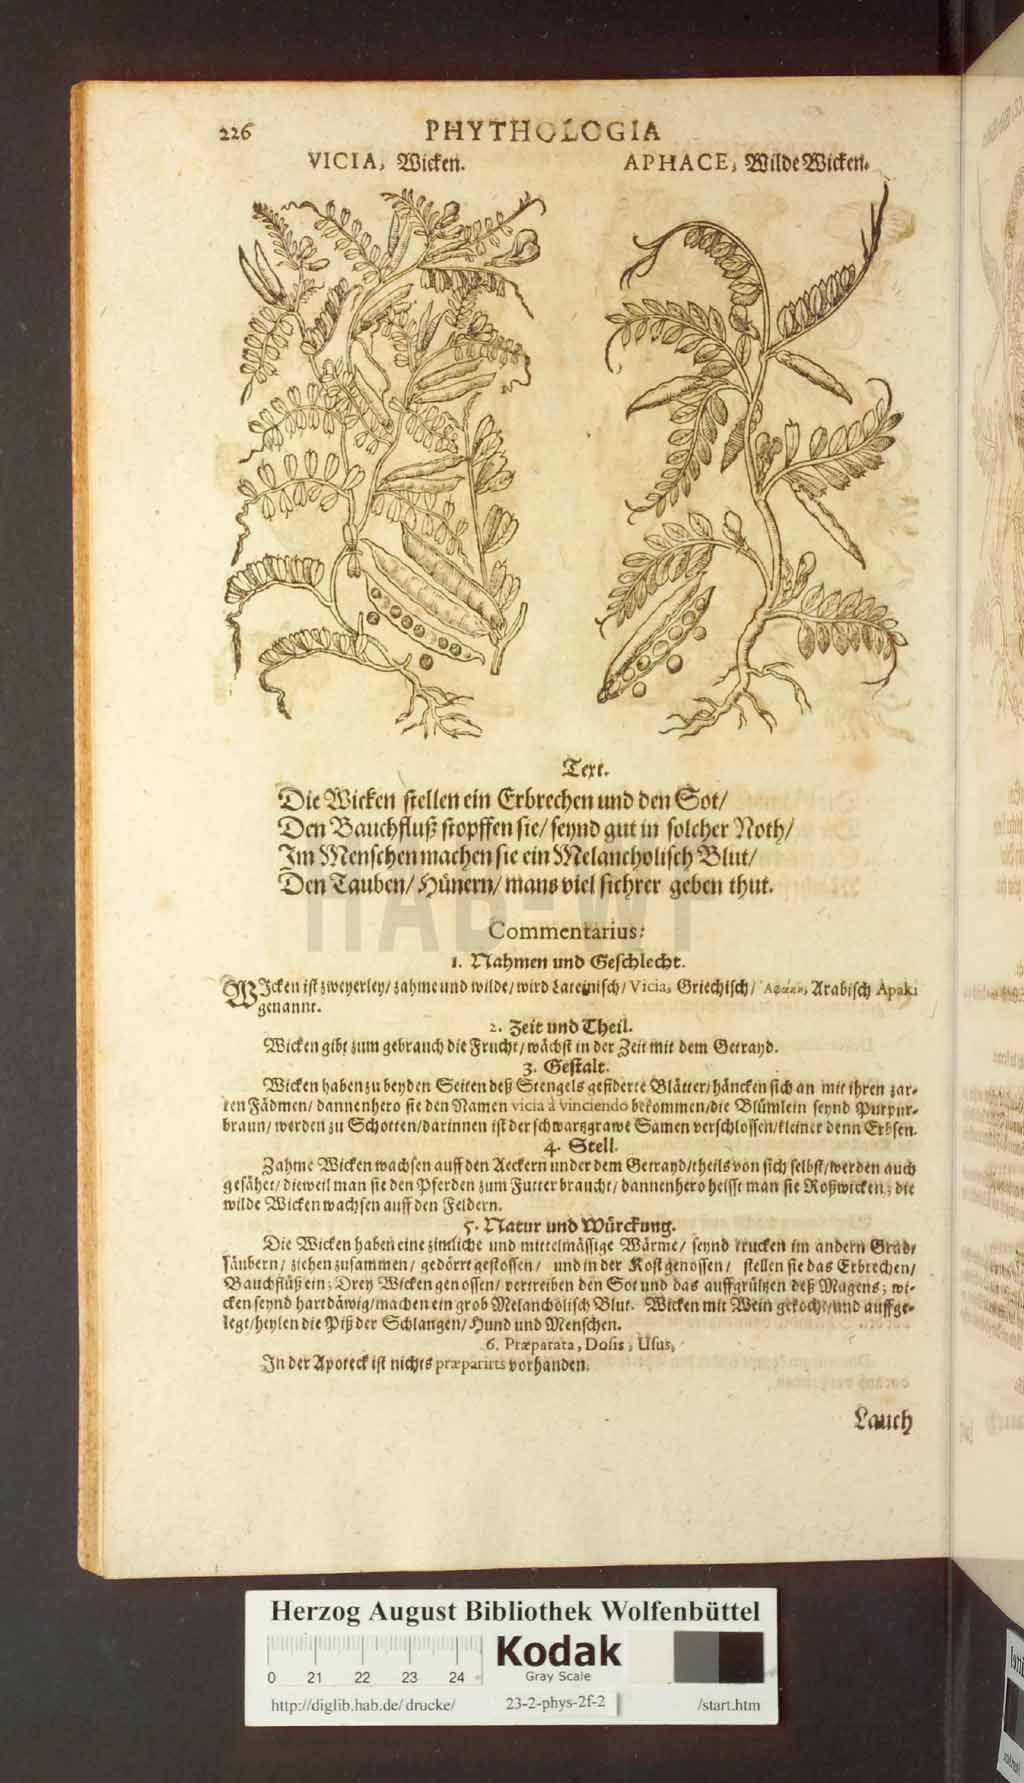 226 PHYTHOLOGIA
VICIA, Wicken. APHACE, Wilde Wicken.
Text.
Die Wicken stellen ein Erbrechen und den Sot/
Den Bauchfluß stopffen sie/ seynd gut in solcher Noth/
Im Menschen machen sie ein Melancholisch Blut/
Den Tauben/ Hünern/ mans viel siehrer geben thut.
HAB-WF
Commentarius:
1. Nahmen und Geschlecht.
WIcken ist zweyerley/ zahme und wilde/ wird Lateinisch/ Vicia, Griechisch/ Arabisch Apaki
genannt.
2. Zeit und Theil.
Wicken gibt zum gebrauch die Frucht/ wächst in der Zeit mit dem Getrayd.
3. Gestalt.
Wicken haben zu beyden Seiten deß Stengels gefiderte Blätter/ häncken sich an mit ihren zar-
ten Fädmen/ dannenhero sie den Namen vicia à vinciendo bekommen/ die Blümlein seynd Purpur-
braun/ werden zu Schotten/ darinnen ist der schwartzgrawe Samen verschlossen/ kleiner denn Erbsen.
4. Stell.
Zahme Wicken wachsen auff den Aeckern under dem Getrayd/ theils von sich selbst/ werden auch
gesähet/ dieweil man sie den Pferden zum Futter braucht/ dannenhero heisst man sie Roßwicken; die
wilde Wicken wachsen auff den Feldern.
5. Natur und Würckung.
Die Wicken haben eine zimliche und mittelmässige Wärme/ seynd trucken im andern Grad/
säubern/ ziehen zusammen/ gedörrt gestossen/ und in der Kost genossen/ stellen sie das Erbrechen/
Bauchflüß ein; Drey Wicken genossen/ vertreiben den Sot und das auffgrültzen deß Magens; wi-
cken seynd hartdäwig/ machen ein grob Melancholisch Blut. Wicken mit Wein gekocht/ und auffge-
legt/ heylen die Piß der Schlangen/ Hund und Menschen.
6. Præparata, Dosis, Usus,
In der Apoteck ist nichts præparirts vorhanden.
Lauch
Herzog August Bibliothek Wolfenbüttel
0 21 22 23 24
Kodak
Gray Scale
http://diglib.hab.de/ drucke/ 23-2-phys-2f-2 /start.htm